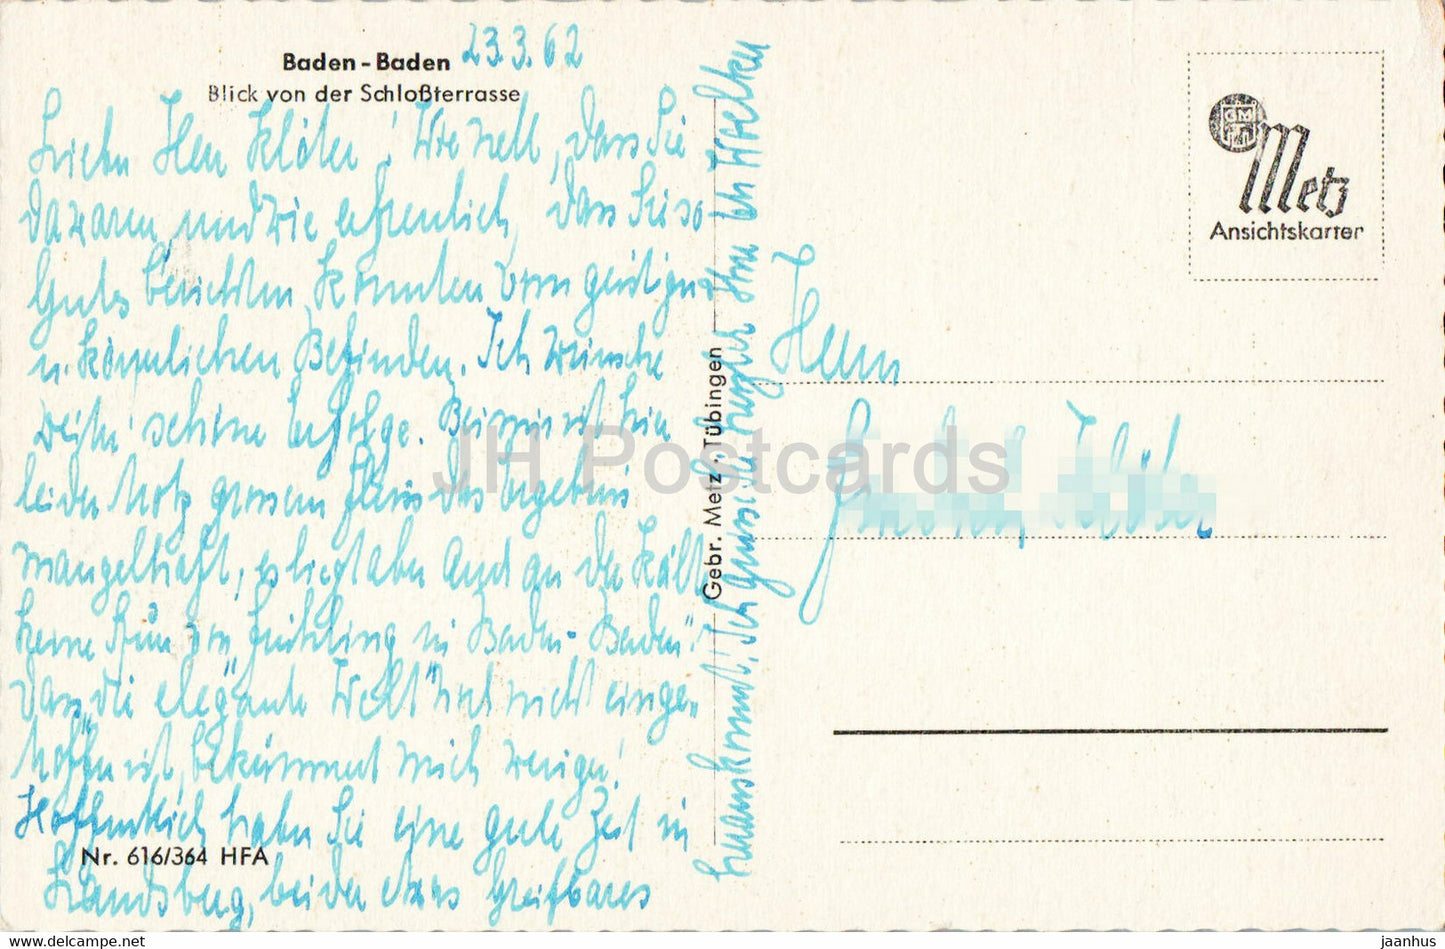 Baden-Baden 23.3.62
Blick von der Schloßterrasse
Lieber Herr Klöter! Wie nett, dass Sie
da waren und wie erfreulich, dass Sie so
Gutes berichten konnten vom geistigen
u. körperlichen Befinden. Ich wünsche
weiter schöne Erfolge. Bei mir ist hier
leider trotz grossem Fleiss das Ergebnis
mangelhaft, es liegt aber auch an der Kälte
keine Spur von "Frühling in Baden-Baden"!
Dass die "elegante Welt" noch nicht einge-
troffen ist, bekümmert mich weniger!
Hoffentlich haben Sie eine gute Zeit in
Nr. 616/364 HFA
Landsberg, bei der etwas Greifbares
herauskommt! Ich grüsse Sie herzlich Ihre
Gebr. Metz · Tübingen
GMT
Metz
Ansichtskarten
Herrn
JH Postcards
jaanhus | delcampe.net